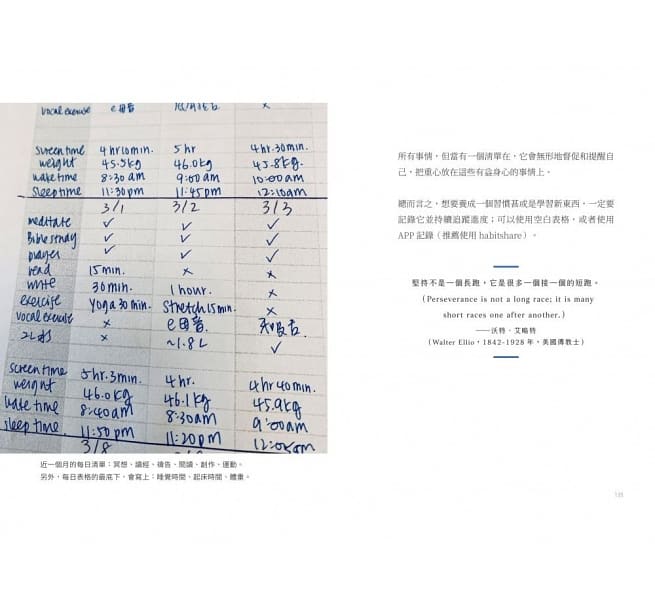 vocal exercise e母音 x
screen time 4hr 10min. 5hr 4hr.30min.
weight 45.5kg 46.0kg 45.8kg.
wake time 8:30am 9:00am 10:00am
sleep time 11:30pm 11:45pm 12:10am
3/1 3/2 3/3
meditate ✓ ✓ ✓
Bible study ✓ ✓ ✓
prayer ✓ ✓ ✓
read 15min. x x
write 30min. 1hour. x
exercise Yoga 30min. Stretch 15min. x
vocal exercise x e母音.
2L水 x ~1.8L ✓
screen time 5hr.3min. 4hr. 4hr 40min.
weight 46.0kg 46.1kg 45.9kg
wake time 8:40am 8:30am 9:00am
sleep time. 11:50pm 11:20pm 12:05am
3/8
近一個月的每日清單：冥想、讀經、禱告、閱讀、創作、運動。
另外，每日表格的最底下，會寫上：睡覺時間、起床時間、體重。
所有事情，但當有一個清單在，它會無形地督促和提醒自
己，把重心放在這些有益身心的事情上。
總而言之，想要養成一個習慣甚或是學習新東西，一定要
記錄它並持續追蹤進度；可以使用空白表格，或者使用
APP 記錄（推薦使用 habitshare）。
堅持不是一個長跑，它是很多一個接一個的短跑。
（Perseverance is not a long race; it is many
short races one after another.）
——沃特．艾略特
（Walter Ellio，1842-1928 年，美國傳教士）